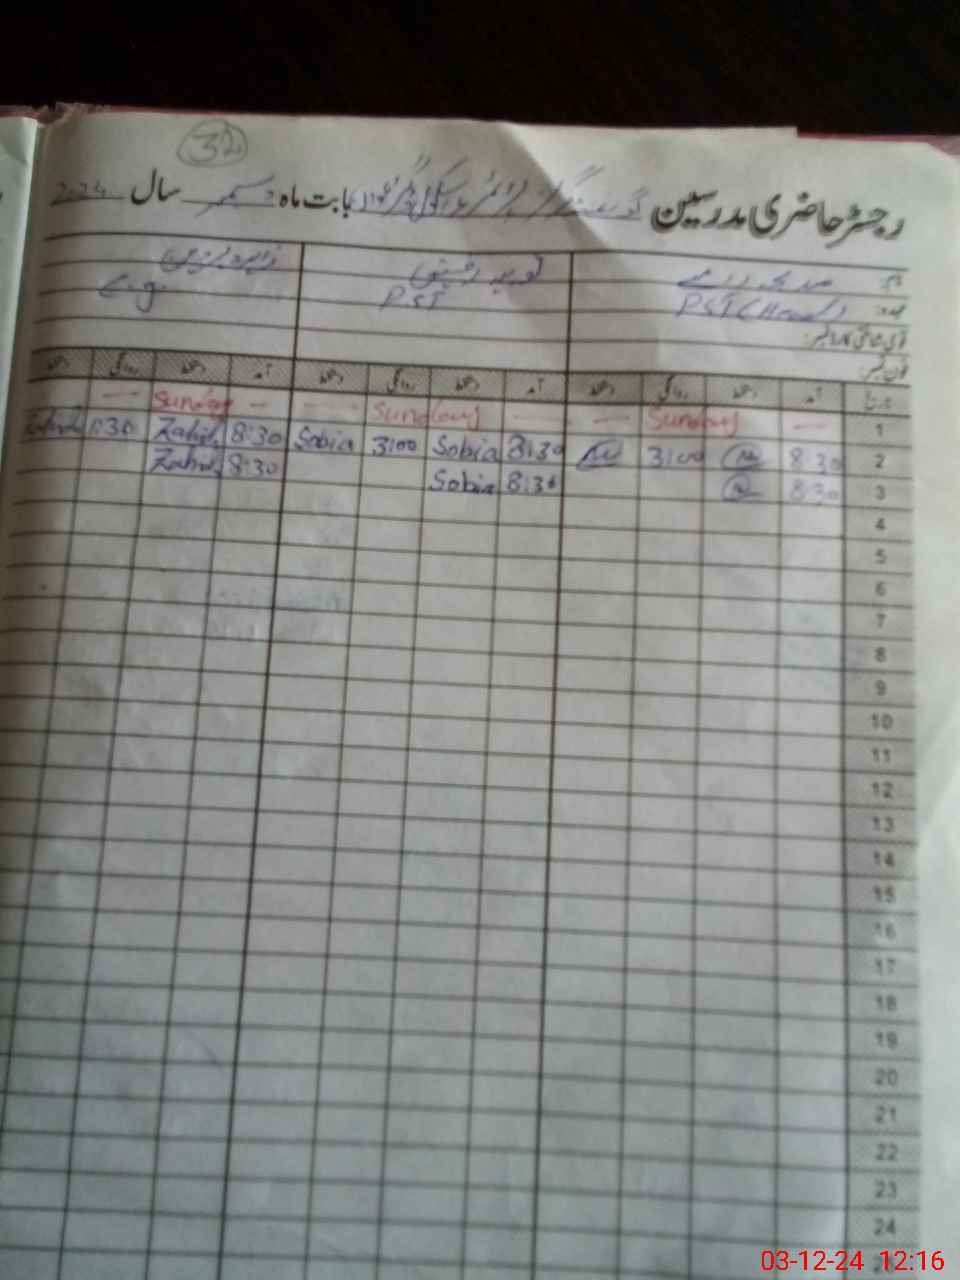 32
رجسٹر حاضری مدرسین گورنمنٹ گرلز پرائمری سکول بابت ماہ دسمبر سال 2024
نام:
عہدہ: PST (Head) PST
قومی شناختی کارڈ نمبر:
فون نمبر:
تاریخ آمد دستخط روانگی دستخط آمد دستخط روانگی دستخط آمد دستخط روانگی دستخط
1 — Sunday — — Sunday — — Sunday —
2 8:30 3:00 8:30 Sobia 3:00 Sobia 8:30 Zahid 1:30 Zahid
3 8:30 8:30 Sobia 8:30 Zahid
4
5
6
7
8
9
10
11
12
13
14
15
16
17
18
19
20
21
22
23
24
03-12-24 12:16